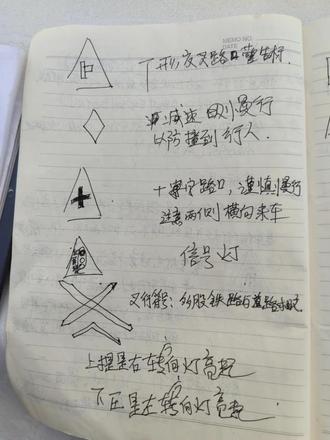 MEMO NO.
DATE
T形交叉路口警告标.
减速 慢行
以防撞到行人.
十字路口,谨慎慢行
注意两侧横向来车
信号灯
叉行符号:多股铁路与道路相交
上提是右转向灯亮起
下压是左转向灯亮起.